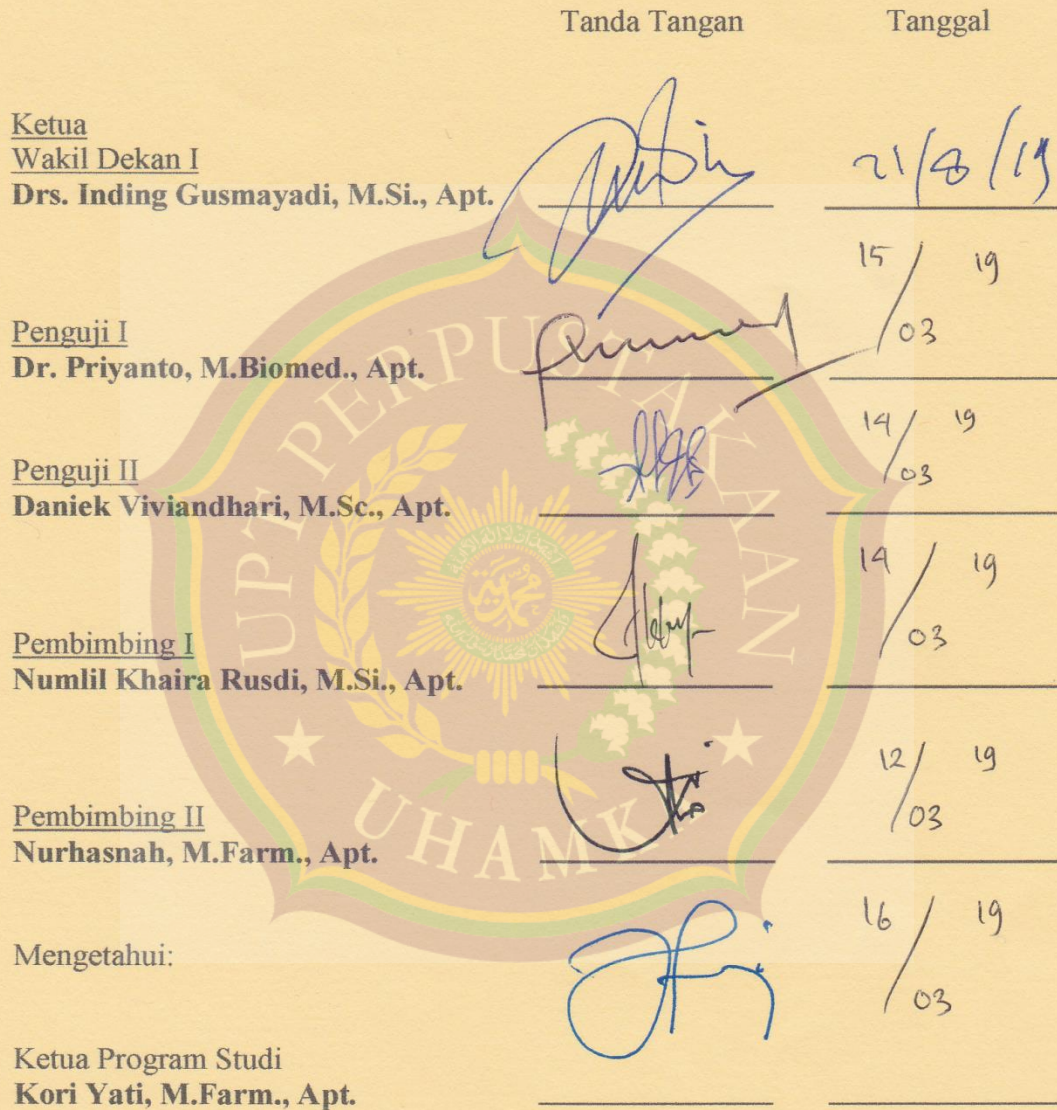 Tanda Tangan Tanggal
Ketua
Wakil Dekan I
Drs. Inding Gusmayadi, M.Si., Apt. 21/8/19
Penguji I
Dr. Priyanto, M.Biomed., Apt. 15/03 19
Penguji II
Daniek Viviandhari, M.Sc., Apt. 14/03 19
Pembimbing I
Numlil Khaira Rusdi, M.Si., Apt. 14/03 19
Pembimbing II
Nurhasnah, M.Farm., Apt. 12/03 19
Mengetahui: 16/03 19
Ketua Program Studi
Kori Yati, M.Farm., Apt.
UPT PERPUSTAKAAN
UHAMKA